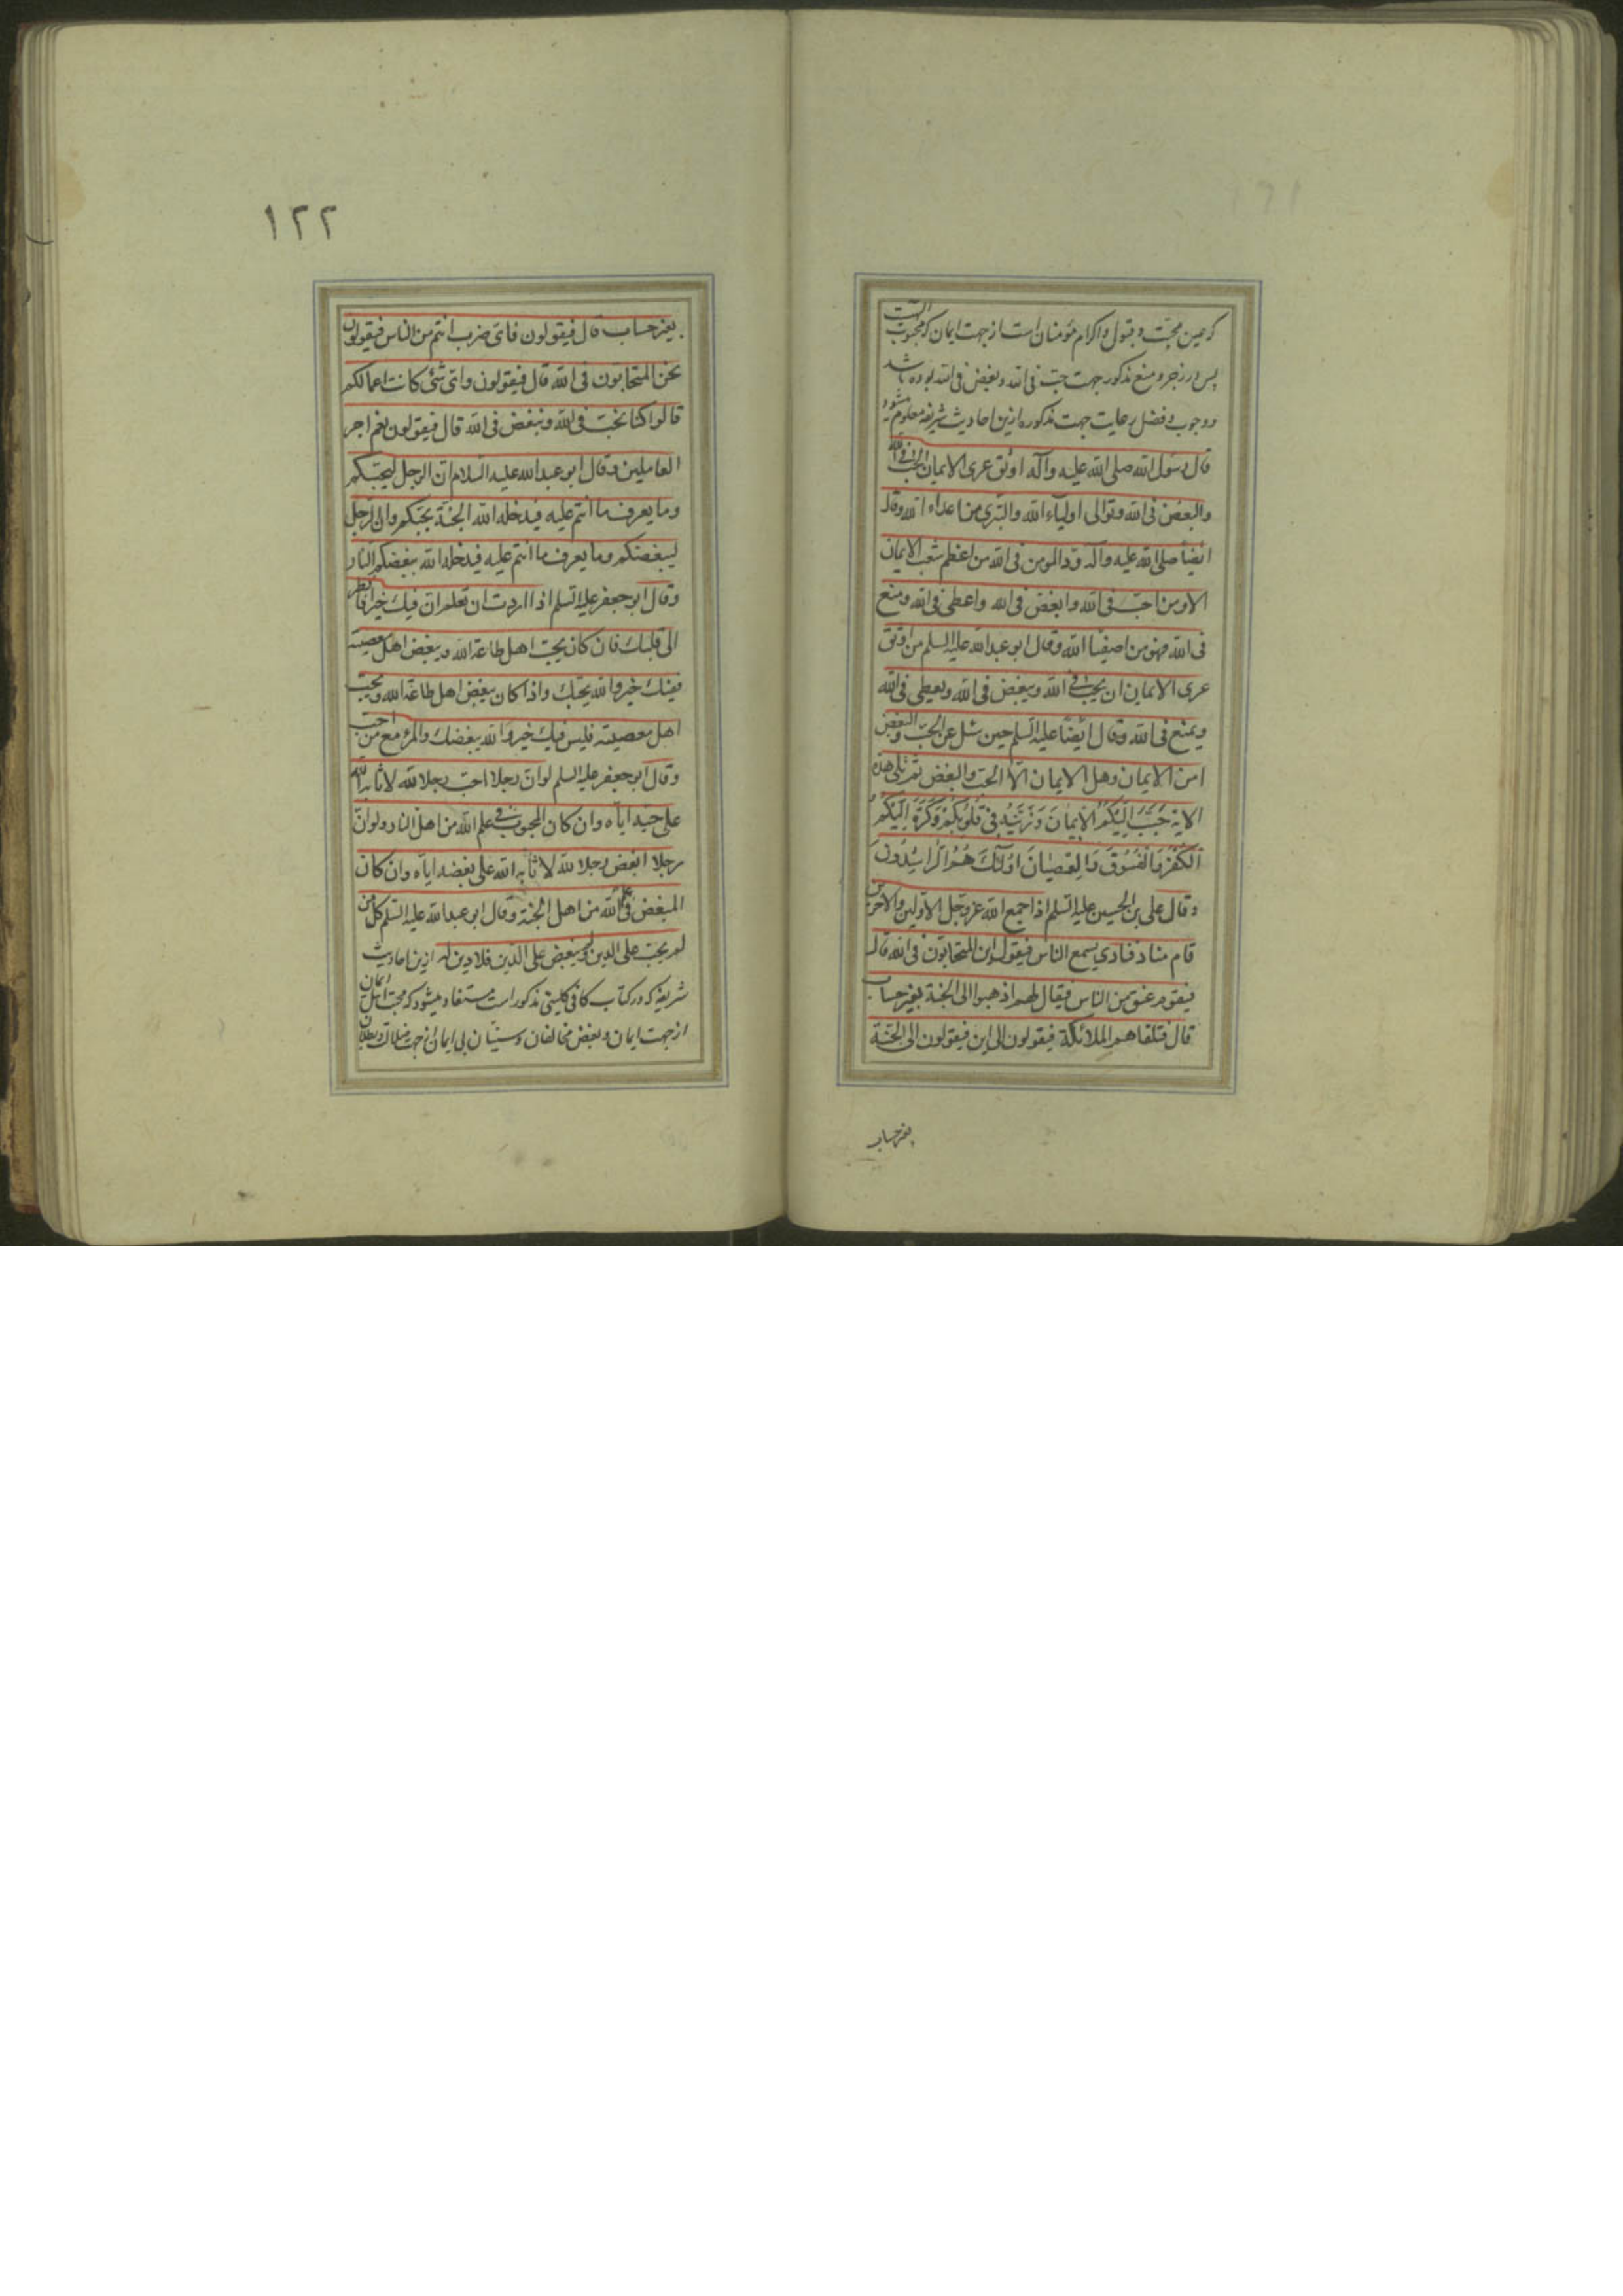 که عین محبّت و قبول و اکرام مؤمنان است از جهت ایمان که محبوب الست
پس در زجر و منع مذکور جهت حبّ فی الله و بغض فی الله بوده باشد
و وجوب و فضل رعایت جهت مذکوره ازین احادیث شریفه معلوم میشود
قال رسول الله صلی الله علیه وآله اوثق عری الایمان الحب فی الله
والبغض فی الله وتوالی اولیاء الله والتبری من اعداء الله وقال
ایضا صلی الله علیه وآله ودّ المومن فی الله من اعظم شعب الایمان
الا ومن احبّ فی الله وابغض فی الله واعطی فی الله ومنع
فی الله فهو من اصفیاء الله وقال ابو عبد الله علیه السلم من اوثق
عری الایمان ان یحب فی الله ویبغض فی الله ویعطی فی الله
ویمنع فی الله وقال ایضا علیه السلم حین سئل عن الحبّ والبغض
امن الایمان وهل الایمان الّا الحبّ والبغض ثم تلی هذه
الایة حَبَّبَ اِلَیْکُمُ الْاِیمٰانَ وَزَیَّنَهُ فی قُلُوبِکُمْ وَکَرَّهَ اِلَیْکُمُ
الْکُفْرَ وَالْفُسُوقَ وَالْعِصْیٰانَ اُولٰئِکَ هُمُ الرّٰاشِدُونَ
وقال علی بن الحسین علیه السلم اذا جمع الله عز وجل الاولین والاخرین
قام مناد فنادی یسمع الناس فیقول این المتحابّون فی الله قال
فیقوم عنق من الناس فیقال لهم اذهبوا الی الجنة بغیر حساب
قال فتلقاهم الملائکة فیقولون الی این فیقولون الی الجنّة
بغیر حساب
۱۲۲
بغیر حساب قال فیقولون فایّ ضرب انتم من الناس فیقولون
نحن المتحابون فی الله قال فیقولون وایّ شئ کانت اعمالکم
قالوا کنّا نحبّ فی الله ونبغض فی الله قال فیقولون نعم اجر
العاملین وقال ابو عبد الله علیه السلام ان الرجل لیحبّکم
وما یعرف ما انتم علیه فیدخله الله الجنّة بحبّکم وان الرجل
لیبغضکم وما یعرف ما انتم علیه فیدخله الله ببغضکم النار
وقال ابو جعفر علیه السلم اذا اردت ان تعلم ان فیک خیرا فانظر
الی قلبک فان کان یحبّ اهل طاعة الله ویبغض اهل معصیته
ففیک خیر والله یحبّک واذا کان یبغض اهل طاعة الله ویحبّ
اهل معصیته فلیس فیک خیر والله یبغضک والمرء مع من احبّ
وقال ابو جعفر علیه السلم لو انّ رجلا احبّ رجلا لله لاثابه الله
علی حبّه ایاه وان کان المحبوب فی علم الله من اهل النار ولو انّ
رجلا ابغض رجلا لله لاثابه الله علی بغضه ایاه وان کان
المبغض فی علم الله من اهل الجنة وقال ابو عبد الله علیه السلم کل من
لم یحبّ علی الدین ولم یبغض علی الدین فلا دین له ازین احادیث
شریفه که در کتاب کافی کلینی مذکور است مستفاد میشود که محبّت اهل ایمان
از جهت ایمان و بغض مخالفان و سنیّان بی ایمان از جهت ضلالت و بطلان